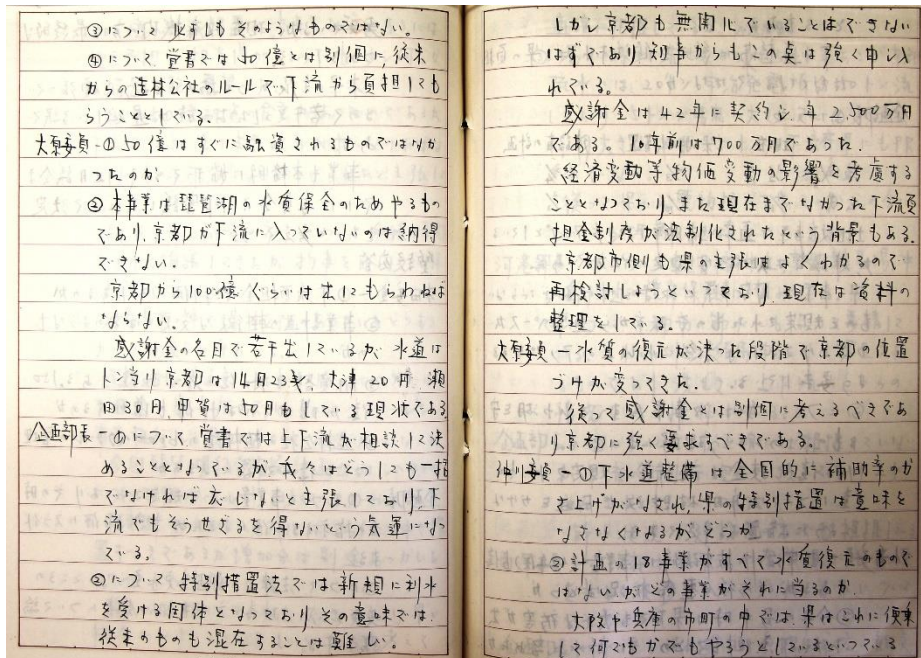 ③について 必ずしもそのようなものではない。
④について 覚書では50億とは別個に従来
からの造林公社のルールで下流から負担しても
らうこととしている。
大原委員ー①50億はすぐに融資されるものではなか
つたのか。
②本事業は琵琶湖の水質保全のためやるもの
であり、京都が下流に入っていないのは納得
できない。
京都から100億ぐらいは出してもらわねば
ならない。
感謝金の名目で若干出しているが 水道は
トン当り京都は14円23銭、大津20円 瀬
田30円、甲賀は50円もしている現状である
企画部長ー①について 覚書では上下流が相談して決
めることとなっているが我々はどうしても一括
でなければ応じないと主張しており、下
流でもそうせざるを得ないという気運になっ
ている。
②について 特別措置法では新規に利水
を受ける団体となっておりその意味では
従来のものも混在することは難しい。
しかし京都も無関心でいることはできない
はずであり知事からもこの点は強く申し入
れている。
感謝金は42年に契約し、年2,500万円
である。10年前は700万円であった。
経済変動等物価変動の影響を考慮する
こととなっており、また現在までなかった下流負
担金制度が法制化されたという背景もある。
京都市側も県の主張はよくわかるので
再検討しようといっており、現在は資料の
整理をしている。
大原委員ー水質の復元が決った段階で京都の位置
づけが変ってきた。
従って感謝金とは別個に考えるべきであ
り京都に強く要求すべきである。
委員ー①下水道整備は全国的に補助率のか
さ上げがなされ、県の特別措置は意味を
なさなくなるがどうか
②計画の18事業がすべて水質復元のもので
はないが、どの事業がそれに当るのか
大阪や兵庫の市町の中では県はこれに便乗
して何でもかでもやろうとしているといっている